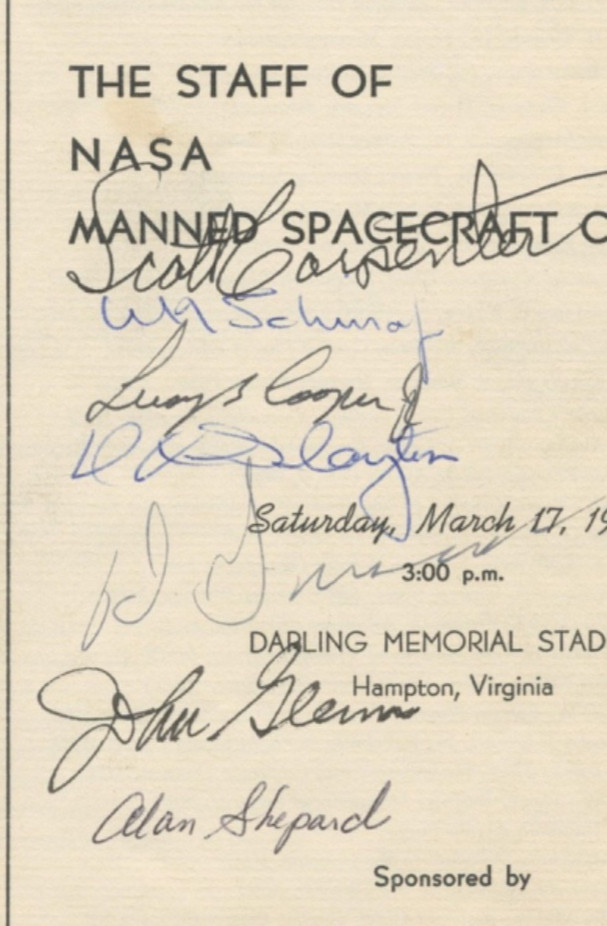 THE STAFF OF
NASA
MANNED SPACECRAFT C
Scott Carpenter
W M Schirra
Leroy G Cooper Jr
D K Slayton
Saturday, March 17, 19
3:00 p.m.
DARLING MEMORIAL STAD
Hampton, Virginia
John Glenn
Alan Shepard
Sponsored by